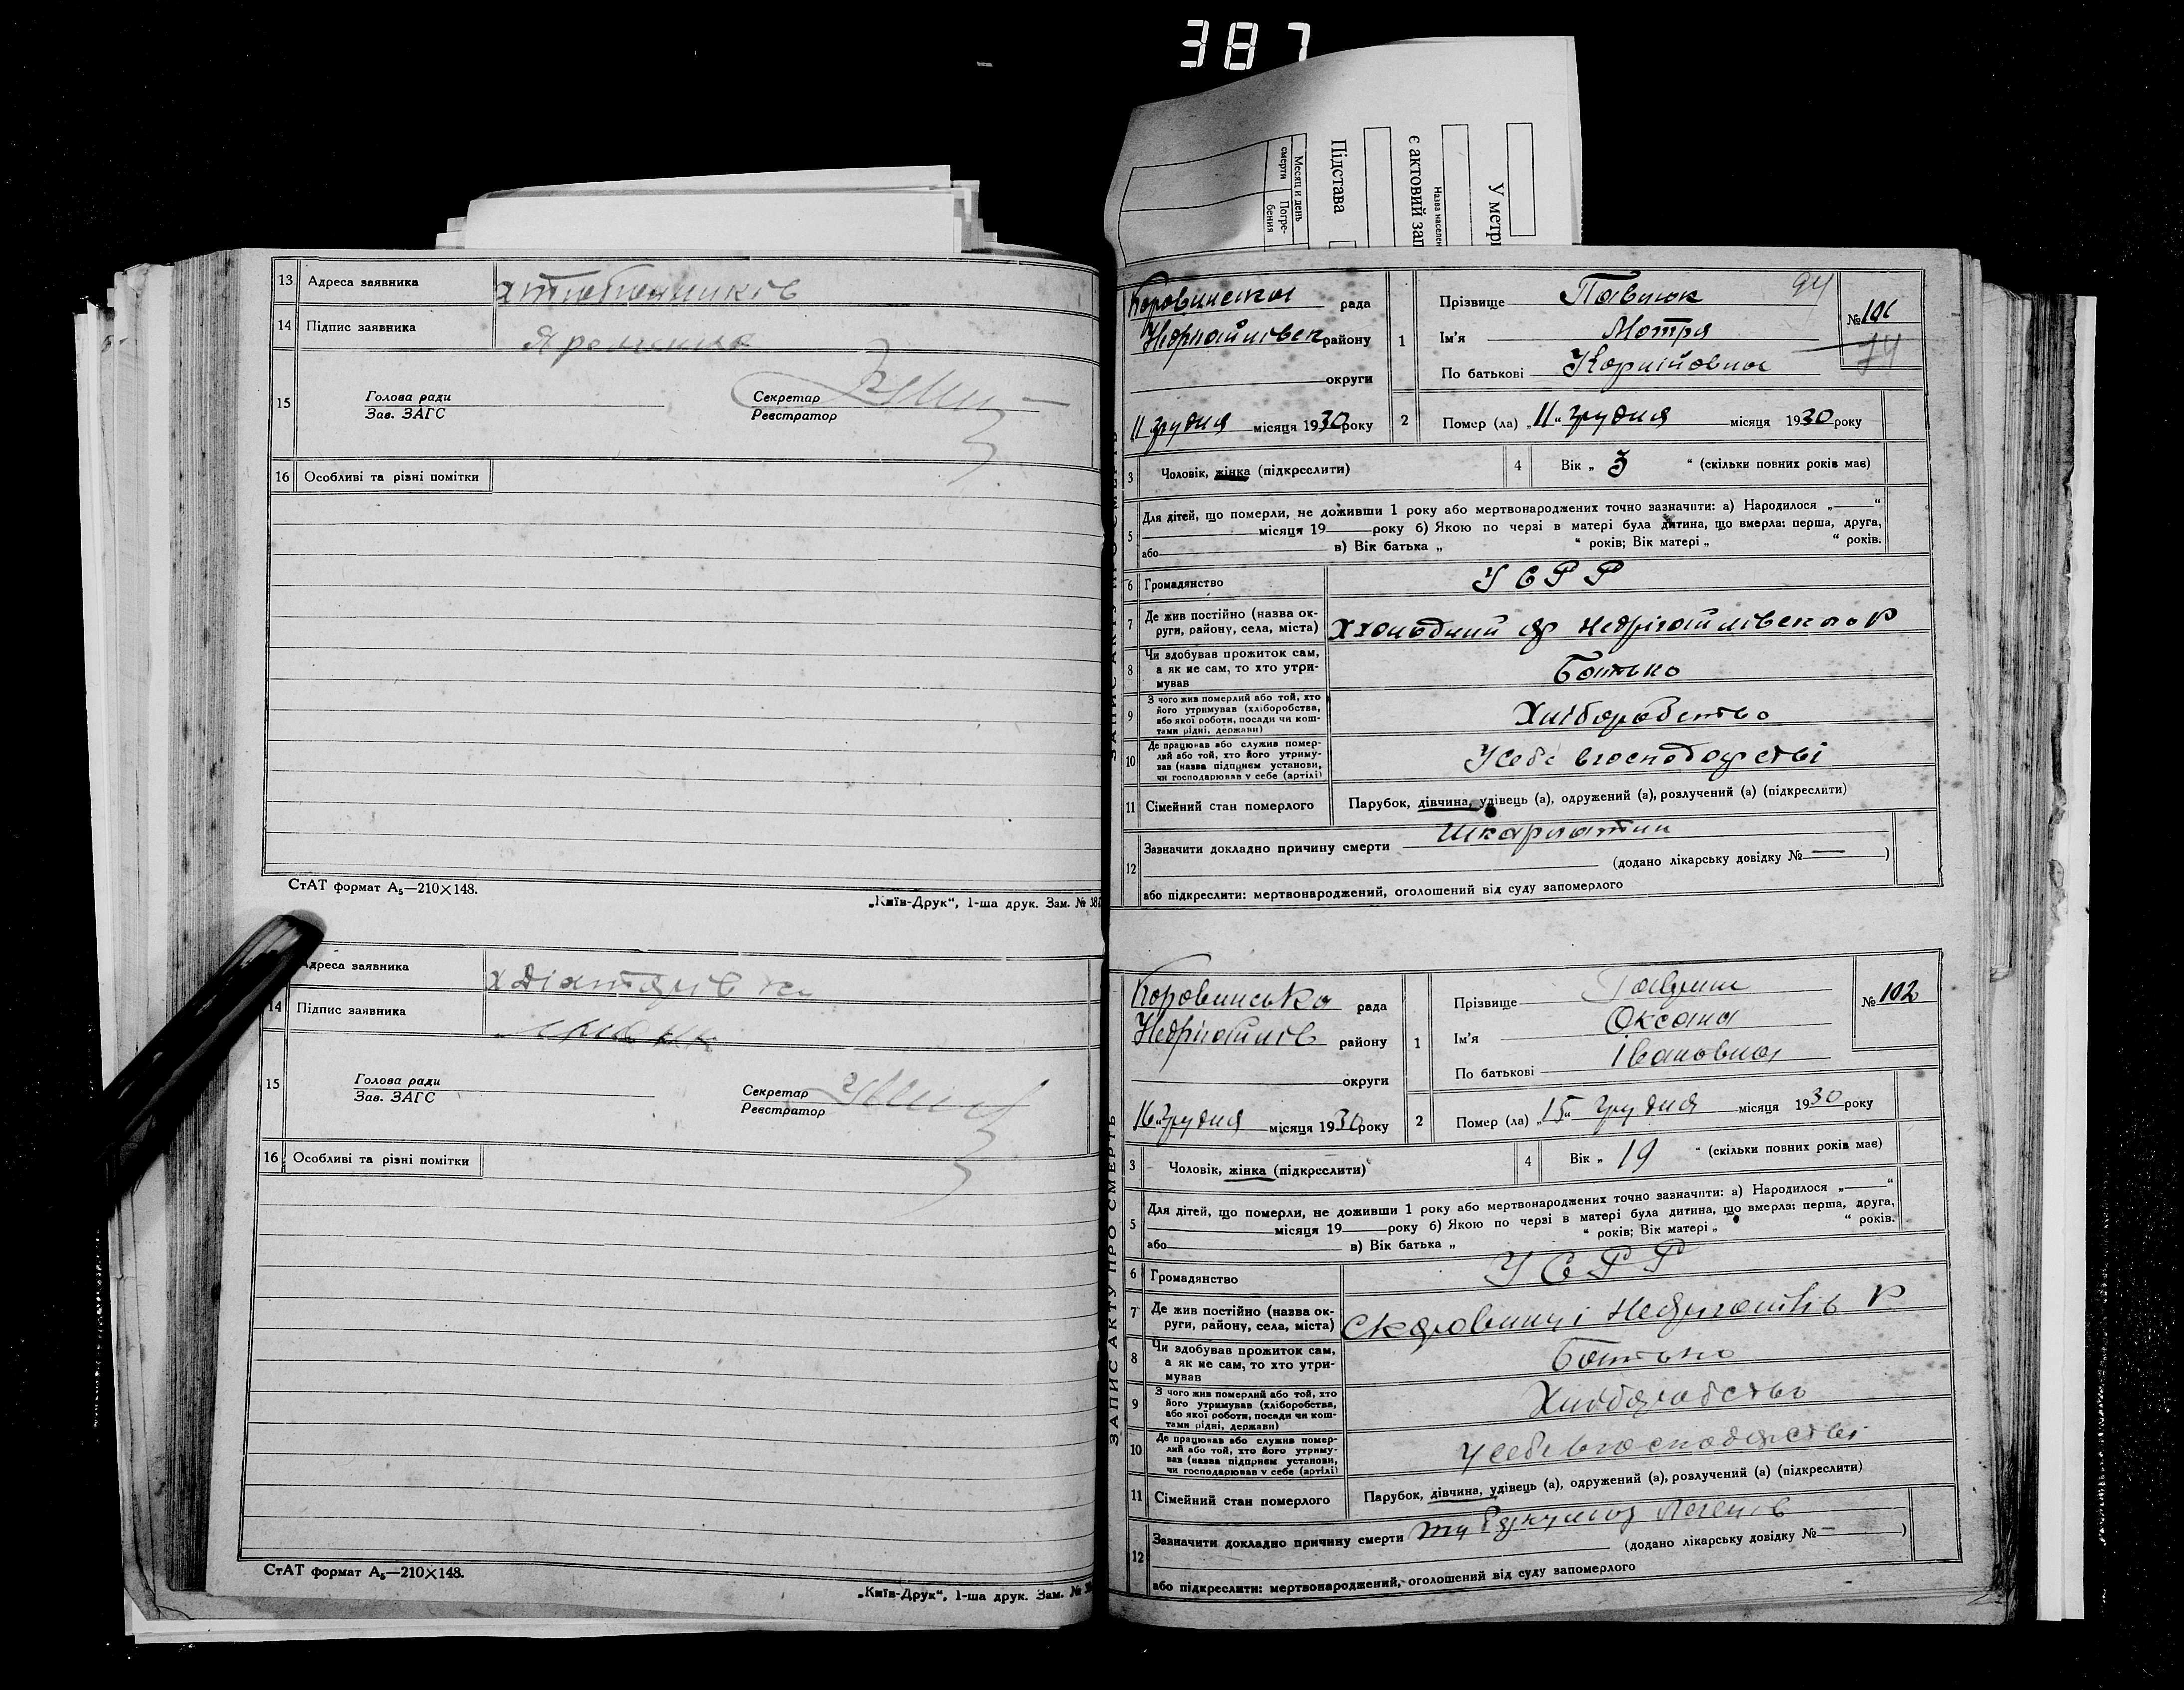 387
Месяц и день
смерти
Погре-
бения
Підстава
є актовий зап
Назва населен
У метрі
13 Адреса заявника
14 Підпис заявника
15 Голова ради
Зав. ЗАГС
Секретар
Реєстратор
16 Особливі та різні помітки
СтАТ формат А₅—210×148.
„Київ-Друк“, 1-ша друк. Зам. № 38
Адреса заявника
14 Підпис заявника
15 Голова ради
Зав. ЗАГС
Секретар
Реєстратор
16 Особливі та різні помітки
СтАТ формат А₅—210×148.
„Київ-Друк“, 1-ша друк. Зам. №
Коровинська рада
Недригайлівськ району
округи
11 грудня місяця 1930 року
1 Прізвище Павлюк 94
Ім'я Мотря
По батькові Корнійовна
№ 101
74
2 Помер (ла) „11“ грудня місяця 1930 року
3 Чоловік, жінка (підкреслити)
4 Вік „ 3 “ (скільки повних років має)
5 Для дітей, що померли, не доживши 1 року або мертвонароджених точно зазначити: а) Народилося „ “
місяця 19 року б) Якою по черзі в матері була дитина, що вмерла: перша, друга,
або в) Вік батька „ “ років; Вік матері „ “ років.
6 Громадянство УСРР
7 Де жив постійно (назва ок-
руги, району, села, міста)
8 Чи здобував прожиток сам,
а як не сам, то хто утри-
мував
Батько
9 З чого жив померлий або той, хто
його утримував (хліборобства,
або якої роботи, посади чи кош-
тами рідні, держави)
Хліборобство
10 Де працював або служив помер-
лий або той, хто його утриму-
вав (назва підприєм установи,
чи господарював у себе (артілі)
У себе в господарстві
11 Сімейний стан померлого Парубок, дівчина, удівець (а), одружений (а), розлучений (а) (підкреслити)
12 Зазначити докладно причину смерти Шкарлатин
(додано лікарську довідку № — )
або підкреслити: мертвонароджений, оголошений від суду запомерлого
ЗАПИС АКТУ ПРО СМЕРТЬ
Коровинська рада
Недригайлів району
округи
16 грудня місяця 1930 року
1 Прізвище
Ім'я Оксана
По батькові Івановна
№ 102
2 Помер (ла) „15“ грудня місяця 1930 року
3 Чоловік, жінка (підкреслити)
4 Вік „ 19 “ (скільки повних років має)
5 Для дітей, що померли, не доживши 1 року або мертвонароджених точно зазначити: а) Народилося „ “
місяця 19 року б) Якою по черзі в матері була дитина, що вмерла: перша, друга,
або в) Вік батька „ “ років; Вік матері „ “ років.
6 Громадянство УСРР
7 Де жив постійно (назва ок-
руги, району, села, міста)
с Коровинці Недригайлів Р
8 Чи здобував прожиток сам,
а як не сам, то хто утри-
мував
Батько
9 З чого жив померлий або той, хто
його утримував (хліборобства,
або якої роботи, посади чи кош-
тами рідні, держави)
Хліборобство
10 Де працював або служив помер-
лий або той, хто його утриму-
вав (назва підприєм установи,
чи господарював у себе (артілі)
У себе в господарстві
11 Сімейний стан померлого Парубок, дівчина, удівець (а), одружений (а), розлучений (а) (підкреслити)
12 Зазначити докладно причину смерти
(додано лікарську довідку № — )
або підкреслити: мертвонароджений, оголошений від суду запомерлого
ЗАПИС АКТУ ПРО СМЕРТЬ